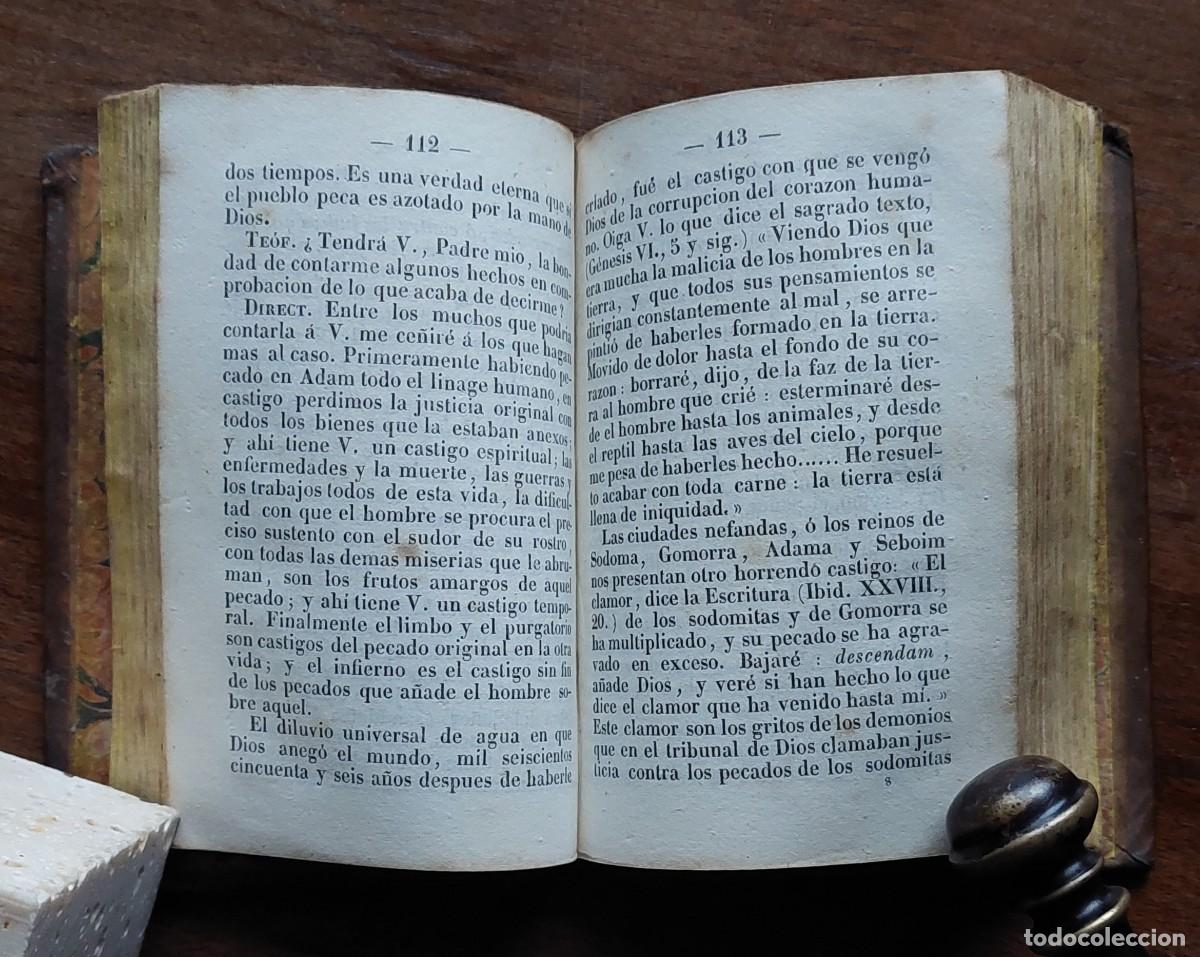 — 112 —
dos tiempos. Es una verdad eterna que si
el pueblo peca es azotado por la mano de
Dios.
TEÓF. ¿Tendrá V., Padre mio, la bon-
dad de contarme algunos hechos en com-
probacion de lo que acaba de decirme?
DIRECT. Entre los muchos que podria
contarla á V. me ceñiré á los que hagan
mas al caso. Primeramente habiendo pe-
cado en Adam todo el linage humano, en
castigo perdimos la justicia original con
todos los bienes que la estaban anexos;
y ahí tiene V. un castigo espiritual; las
enfermedades y la muerte, las guerras y
los trabajos todos de esta vida, la dificul-
tad con que el hombre se procura el pre-
ciso sustento con el sudor de su rostro,
con todas las demas miserias que le abru-
man, son los frutos amargos de aquel
pecado; y ahí tiene V. un castigo tempo-
ral. Finalmente el limbo y el purgatorio
son castigos del pecado original en la otra
vida; y el infierno es el castigo sin fin
de los pecados que añade el hombre so-
bre aquel.
El diluvio universal de agua en que
Dios anegó el mundo, mil seiscientos
cincuenta y seis años despues de haberle
— 113 —
criado, fué el castigo con que se vengó
Dios de la corrupcion del corazon huma-
no. Oiga V. lo que dice el sagrado texto,
(Génesis VI., 5 y sig.) « Viendo Dios que
era mucha la malicia de los hombres en la
tierra, y que todos sus pensamientos se
dirigian constantemente al mal, se arre-
pintió de haberles formado en la tierra.
Movido de dolor hasta el fondo de su co-
razon: borraré, dijo, de la faz de la tier-
ra al hombre que crié: esterminaré des-
de el hombre hasta los animales, y desde
el reptil hasta las aves del cielo, porque
me pesa de haberles hecho...... He resuel-
to acabar con toda carne: la tierra está
llena de iniquidad. »
Las ciudades nefandas, ó los reinos de
Sodoma, Gomorra, Adama y Seboim
nos presentan otro horrendó castigo: « El
clamor, dice la Escritura (Ibid. XXVIII.,
20.) de los sodomitas y de Gomorra se
ha multiplicado, y su pecado se ha agra-
vado en exceso. Bajaré: descendam,
añade Dios, y veré si han hecho lo que
dice el clamor que ha venido hasta mí. »
Este clamor son los gritos de los demonios
que en el tribunal de Dios clamaban jus-
ticia contra los pecados de los sodomitas
8
todocoleccion